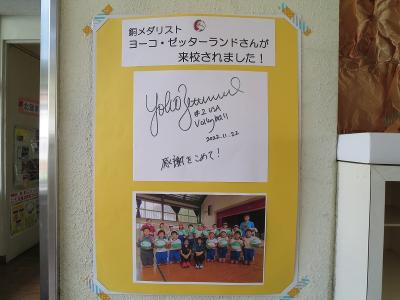 銅メダリスト
ヨーコ・ゼッターランドさんが
来校されました！
Yoko Zetterlund
#2 USA
Volleyball
2022.11.22
感謝をこめて！